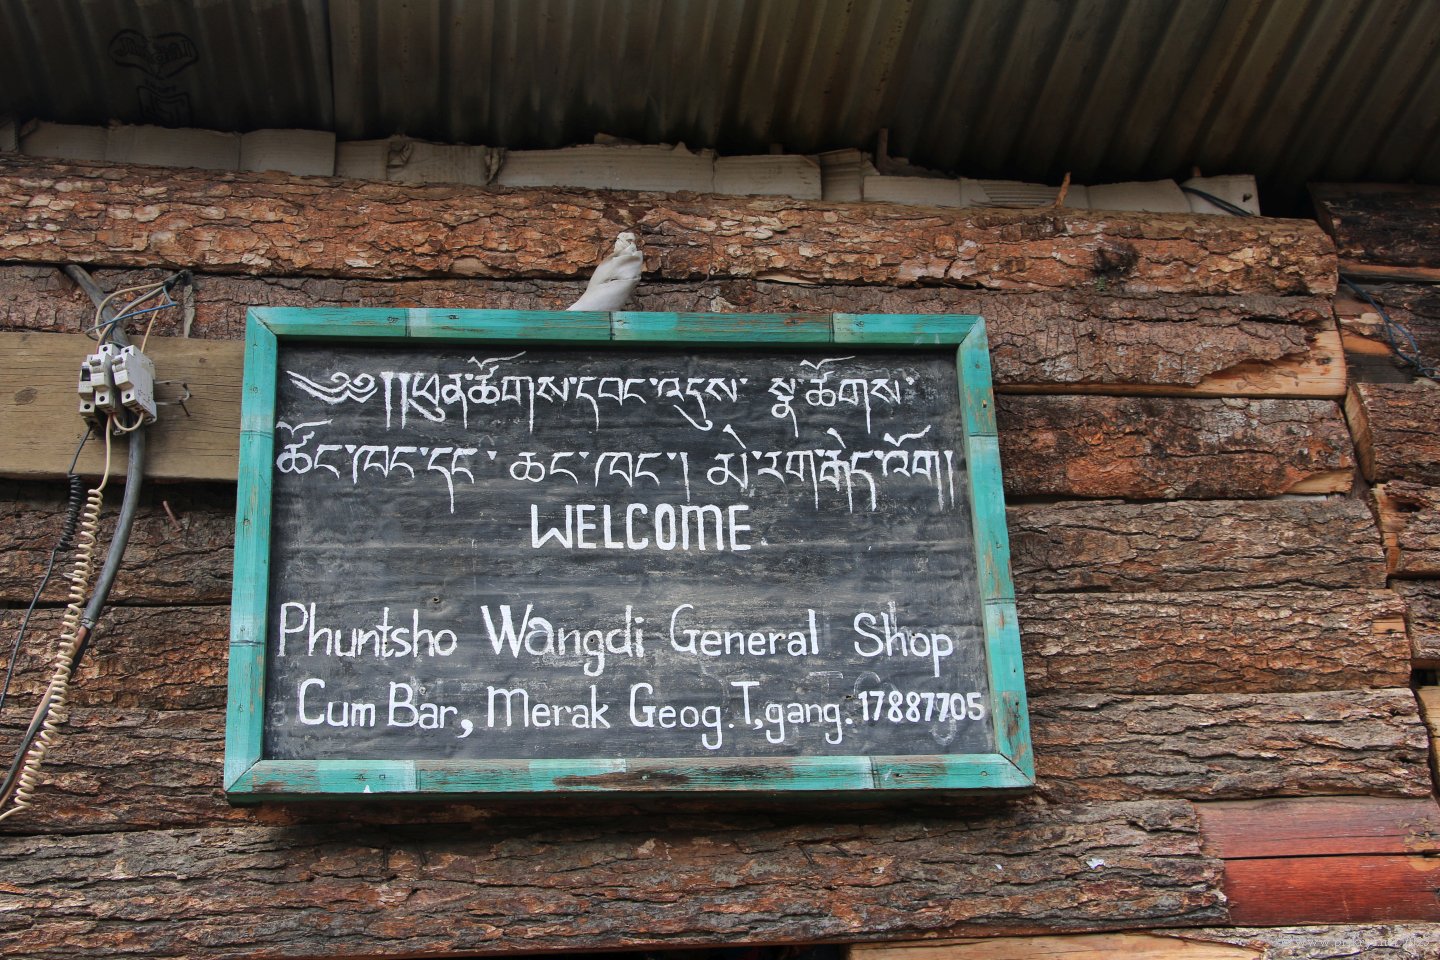 ༄༅།།ཕུན་ཚོགས་དབང་འདུས་ སྣ་ཚོགས་
ཚོང་ཁང་དང་ ཆང་ཁང་། མེ་རག་རྒེད་འོག།
WELCOME.
Phuntsho Wangdi General Shop
Cum Bar, Merak Geog. T,gang. 17887705